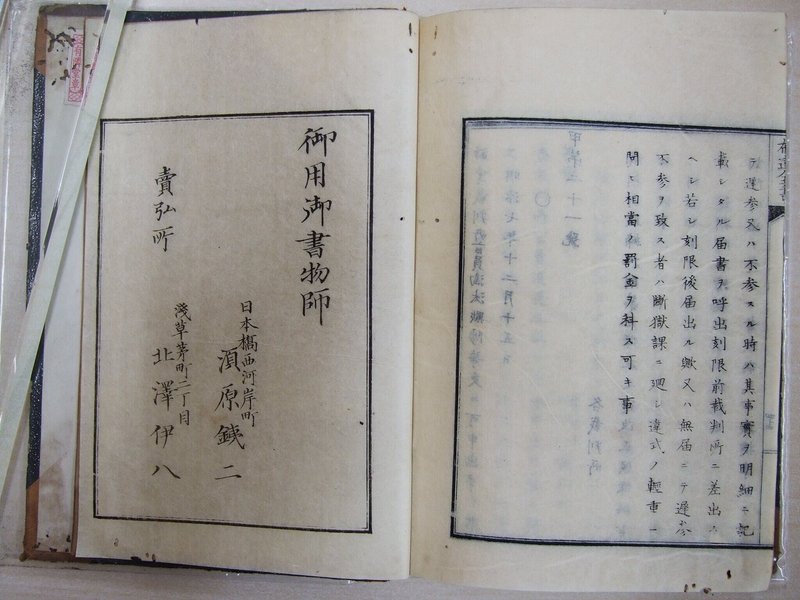 ラ遅参又ハ不参スル時ハ其事實ヲ明細ニ記
載シタル届書ヲ呼出刻限前裁判所ニ差出ス
ヘシ若シ刻限後届出ル歟又ハ無届ニテ遅参
不参ヲ致ス者ハ断獄課ニ廻シ違式ノ輕重ニ
問ヒ相當ノ罰金ヲ科ス可キ事
御用御書物師
日本橋西河岸町
須原鉄二
賣弘所
淺草茅町二丁目
北澤伊八